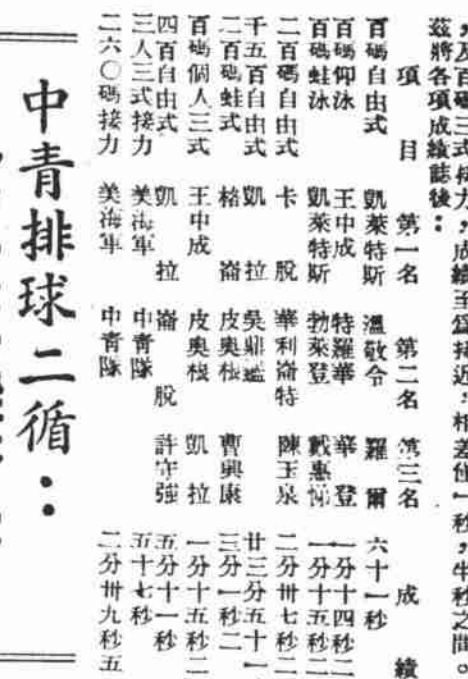 ，及百碼三式接力，成績至爲接近，相差僅一秒，半秒之間。
茲將各項成績誌後：
項目　第一名　第二名　第三名　成績
百碼自由式　凱萊特斯　溫敬令　羅爾　六十一秒
百碼仰泳　王中成　特羅華　華登　一分十四秒二
百碼蛙泳　凱萊特斯　勃萊登　戴惠　一分十五秒二
二百碼自由式　卡脫　華利崙特　陳玉泉　二分卅七秒二
千五百自由式　凱拉　吳鼎　廿三分五十一
二百碼蛙式　格崙　皮奧根　曹興康　三分一秒二
百碼個人三式　王中成　皮奧根　凱拉　一分十五秒二
四百自由式　凱拉　崙脫　許守強　五分十一秒
三人三式接力　美海軍　中青隊　五十七秒
二六〇碼接力　美海軍　中青隊　二分卅九秒五
中青排球二循：